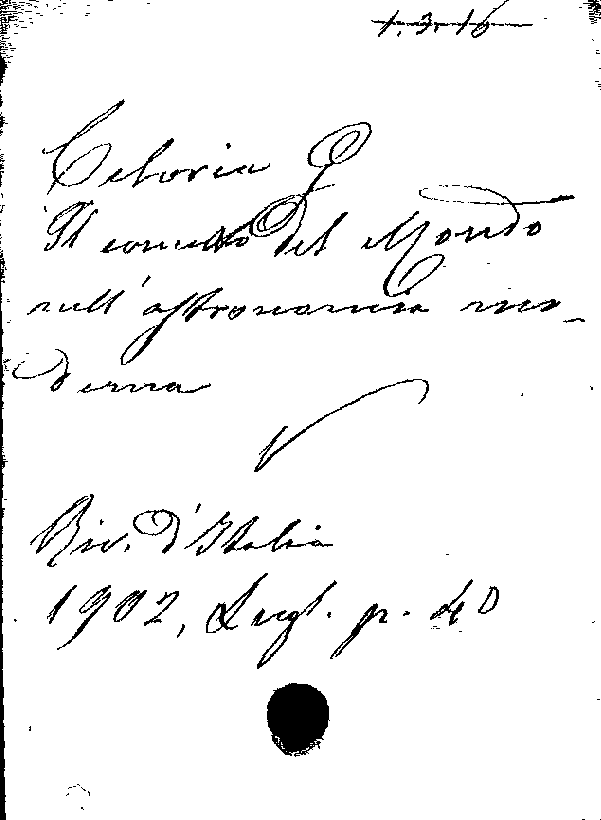 1.3.16
Celoria G
Il concetto del Mondo
nell'astronomia mo-
derna
Riv. d'Italia
1902, Lugl. p. 40